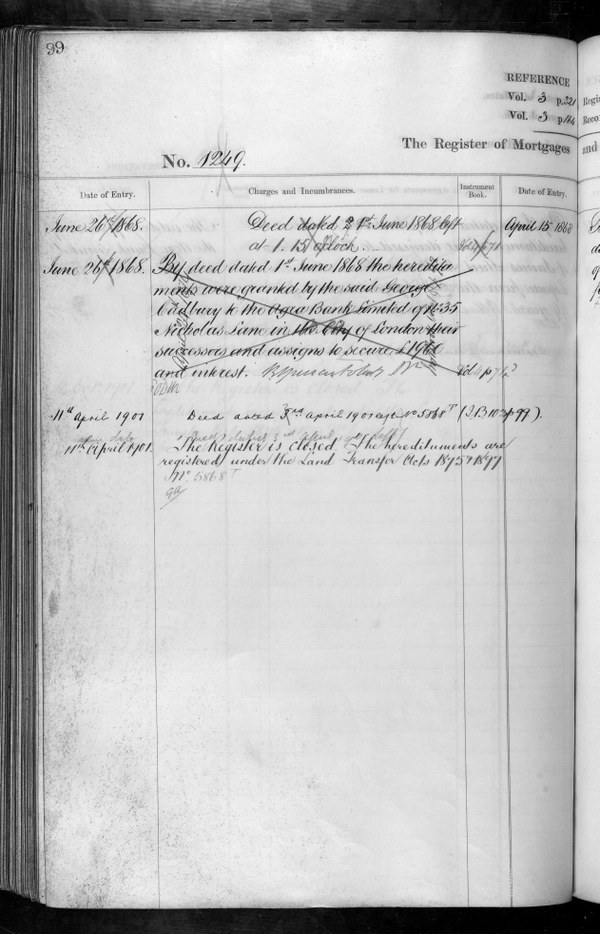 99
REFERENCE
Vol. 3 p.321
Vol. 3 p.
The Register of Mortgages
No. 1249.
Date of Entry.
Charges and Incumbrances.
Instrument
Book.
Date of Entry.
Regis
Recor
and
June 26th 1868.
Deed dated 1st June 1868 left
April 15 1868
at 1. 15 o'clock.
June 26th 1868.
By deed dated 1st June 1868 the heredita
ments were granted by the said George
Cadbury to the Agra Bank Limited of No 35
Nicholas Lane in the City of London their
successors and assigns to secure £1900
and interest.
11th April 1901
Deed dated 3rd April 1901 No 5868T
p 99).
11th April 1901.
The Register is closed. The hereditaments are
registered under the Land Transfer Acts 1875 & 1897
No. 5868T